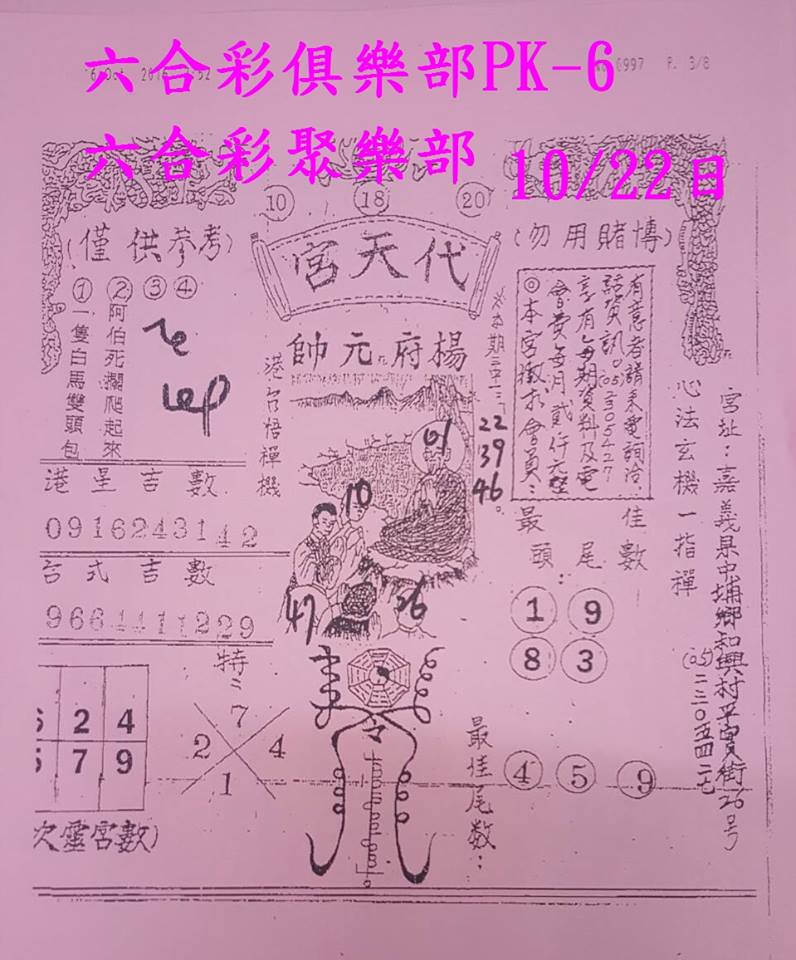 六合彩俱樂部PK-6
P. 3/8
六合彩聚樂部
10/22日
10 18 20
(僅供參考)
代天宮
(勿用賭博)
楊府元帥
①一隻白馬雙頭包
②阿伯死擱爬起來
③④
港台悟禪機
01
10
47
26
22
39
46
有意者請來電詢洽
享有每期資料及電
會費每月貳仟元整
◎本宮徵求會員：
心法玄機一指禪
宮址：嘉義県中埔鄉和興村平實街26号
(05)二三○五四二七
港星吉數
0916243142
台式吉數
9664411229
特:
7
2 4
1
6 2 4
5 7 9
次靈宮數)
令
最佳
頭尾數:
1 9
8 3
最佳尾数:
4 5 9